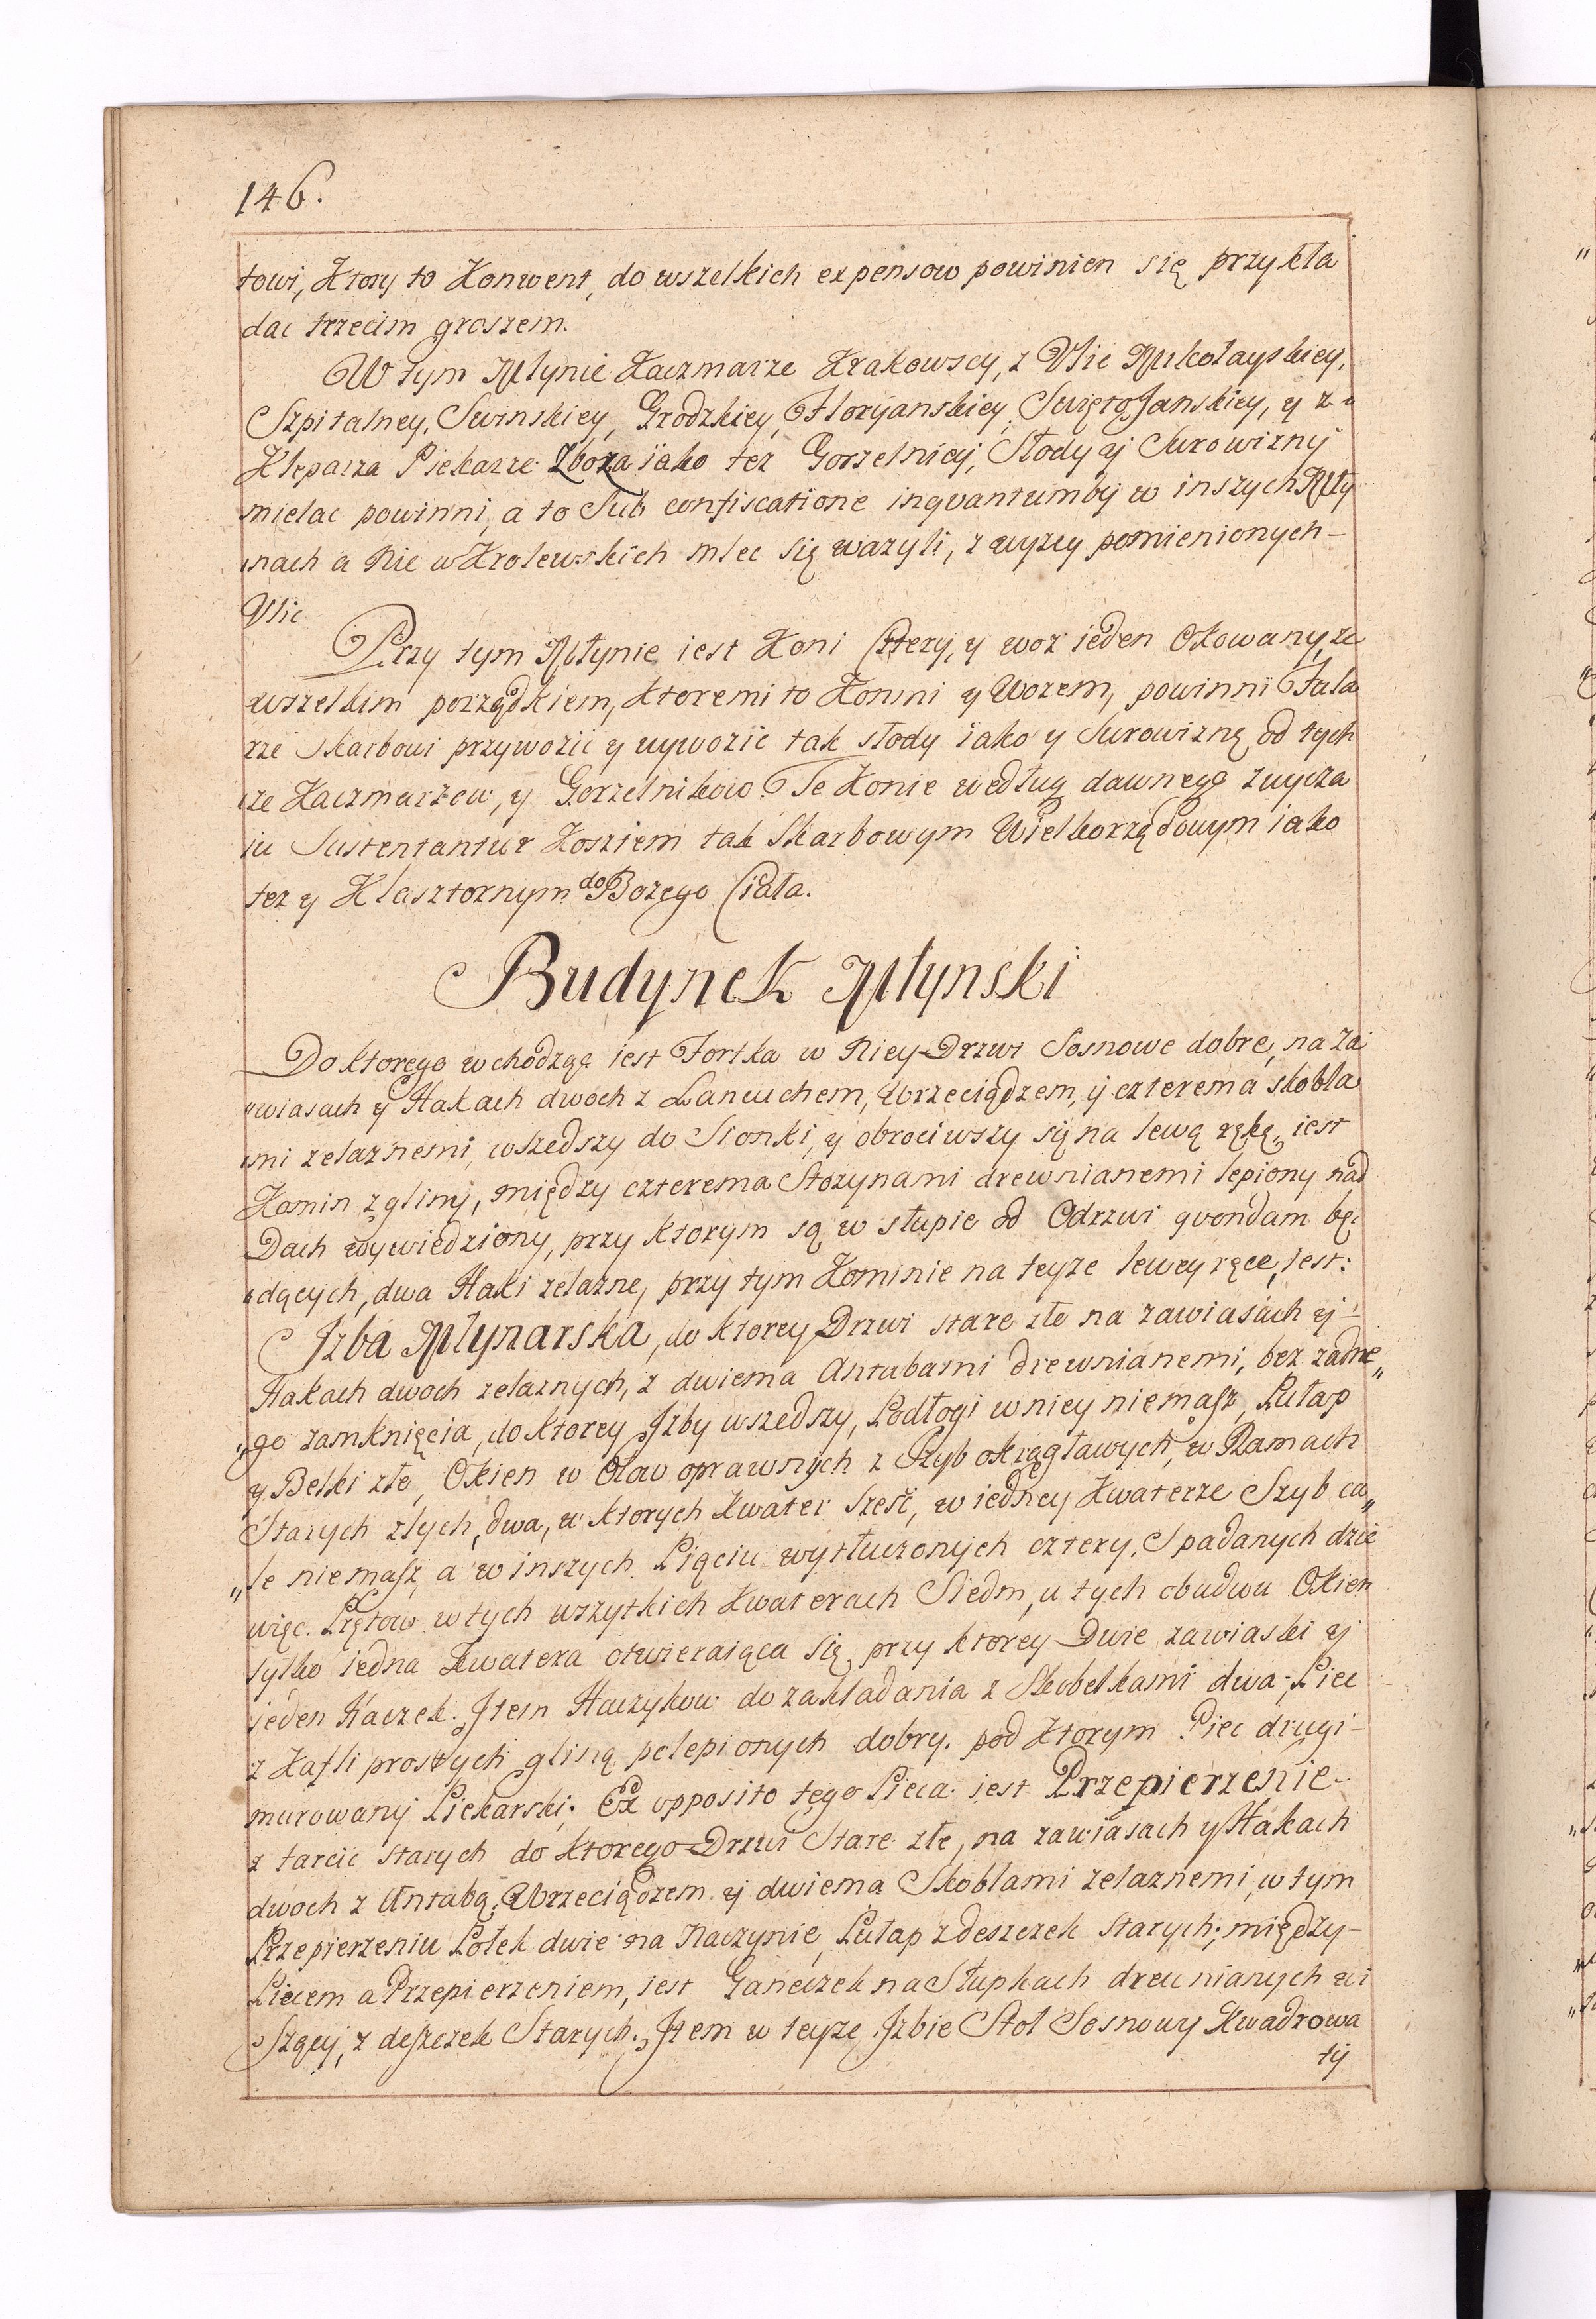 146.
towi, Ktory to Konwent, do wszelkich expensow powinien się przykła
dac trzecim groszem.
W tym Młynie Kaczmarze Krakowscy, z Vlic Mikołayskiey,
Szpitalney, Swinskiey, Grodzkiey, Floryanskiey, SwiętoJanskiey, y z
Kleparza Piekarze Zboza iako tez Gorzelnicy, Słody y Surowizny
mielac powinni, a to Sub confiscatione inqvantumby w inszych Mły
nach a Nie w Krolewskich mlec się wazyli, z wyzey pomienionych
Vlic
Przy tym Młynie iest Koni Cztery, y woz ieden Okowany, ze
wszelkim porządkiem, Ktoremi to Konmi y Wozem, powinni Fula
rze Skarbowi przywozic y wywozic tak słody iako y Surowiznę od tych
ze Kaczmarzow, y Gorzelnikow. Te Konie według dawnego zwycza
iu Sustentantur Kosztem tak Skarbowym Wielkorządowym iako
tez y Klasztornym do Bozego Ciała.
Budynek Młynski
Do ktorego wchodząc iest Fortka w Niey Drzwi Sosnowe dobre, na za
wiasach y Hakach dwoch z Lancuchem, Wrzeciądzem, y czterema skobla
mi zelaznemi, wszedszy do Sionki, y obrociwszy się na lewą rękę, iest
Komin z gliny, między czterema Słozynami drewnianemi lepiony nad
Dach wywiedziony, przy Ktorym są w słupie od Odrzwi qvondam bę
dących, dwa Haki zelazne, przy tym Kominie na teyze lewey ręce, iest:
Jzba Młynarska, do Ktorey Drzwi stare złe na zawiasach y
Hakach dwoch zelaznych, z dwiema Antabami drewnianemi, bez zadne„
„go zamknięcia, do Ktorey Jzby wszedszy, Podłogi w niey niemasz, Pułap
y Belki złe, Okien w Ołow oprawnych z Szyb okrągławych, w Ramach
Starych złych, dwa, w Ktorych Kwater Sześć, w iedney Kwaterze Szyb ca„
„łe niemasz, a w inszych Pięciu wytłuczonych cztery, Spadanych dzie
więc. Prętow w tych wszytkich Kwaterach Siedm, u tych obudwu Okien
tylko iedna Kwatera otwieraiąca się, przy Ktorey Dwie zawiaski y
jeden Haczek. Jtem Haczykow do zakładania z Skobelkami dwa, Piec
z Kafli prostych gliną polepionych dobry, pod Ktorym Piec drugi
murowany Piekarski; Ex opposito tego Pieca iest Przepierzenie
z tarcic starych do Ktorego Drzwi Stare złe, na zawiasach y Hakach
dwoch z Antabą, Wrzeciądzem y dwiema Skoblami zelaznemi, w tym
Przepierzeniu Połek dwie na Naczynie, Pułap z deszczek starych; między
Piecem a Przepierzeniem, iest Ganeczek na Słupkach drewnianych wi
Szący, z deszczek Starych. Jtem w teyze Jzbie Stoł Sosnowy Kwadrowa
ty